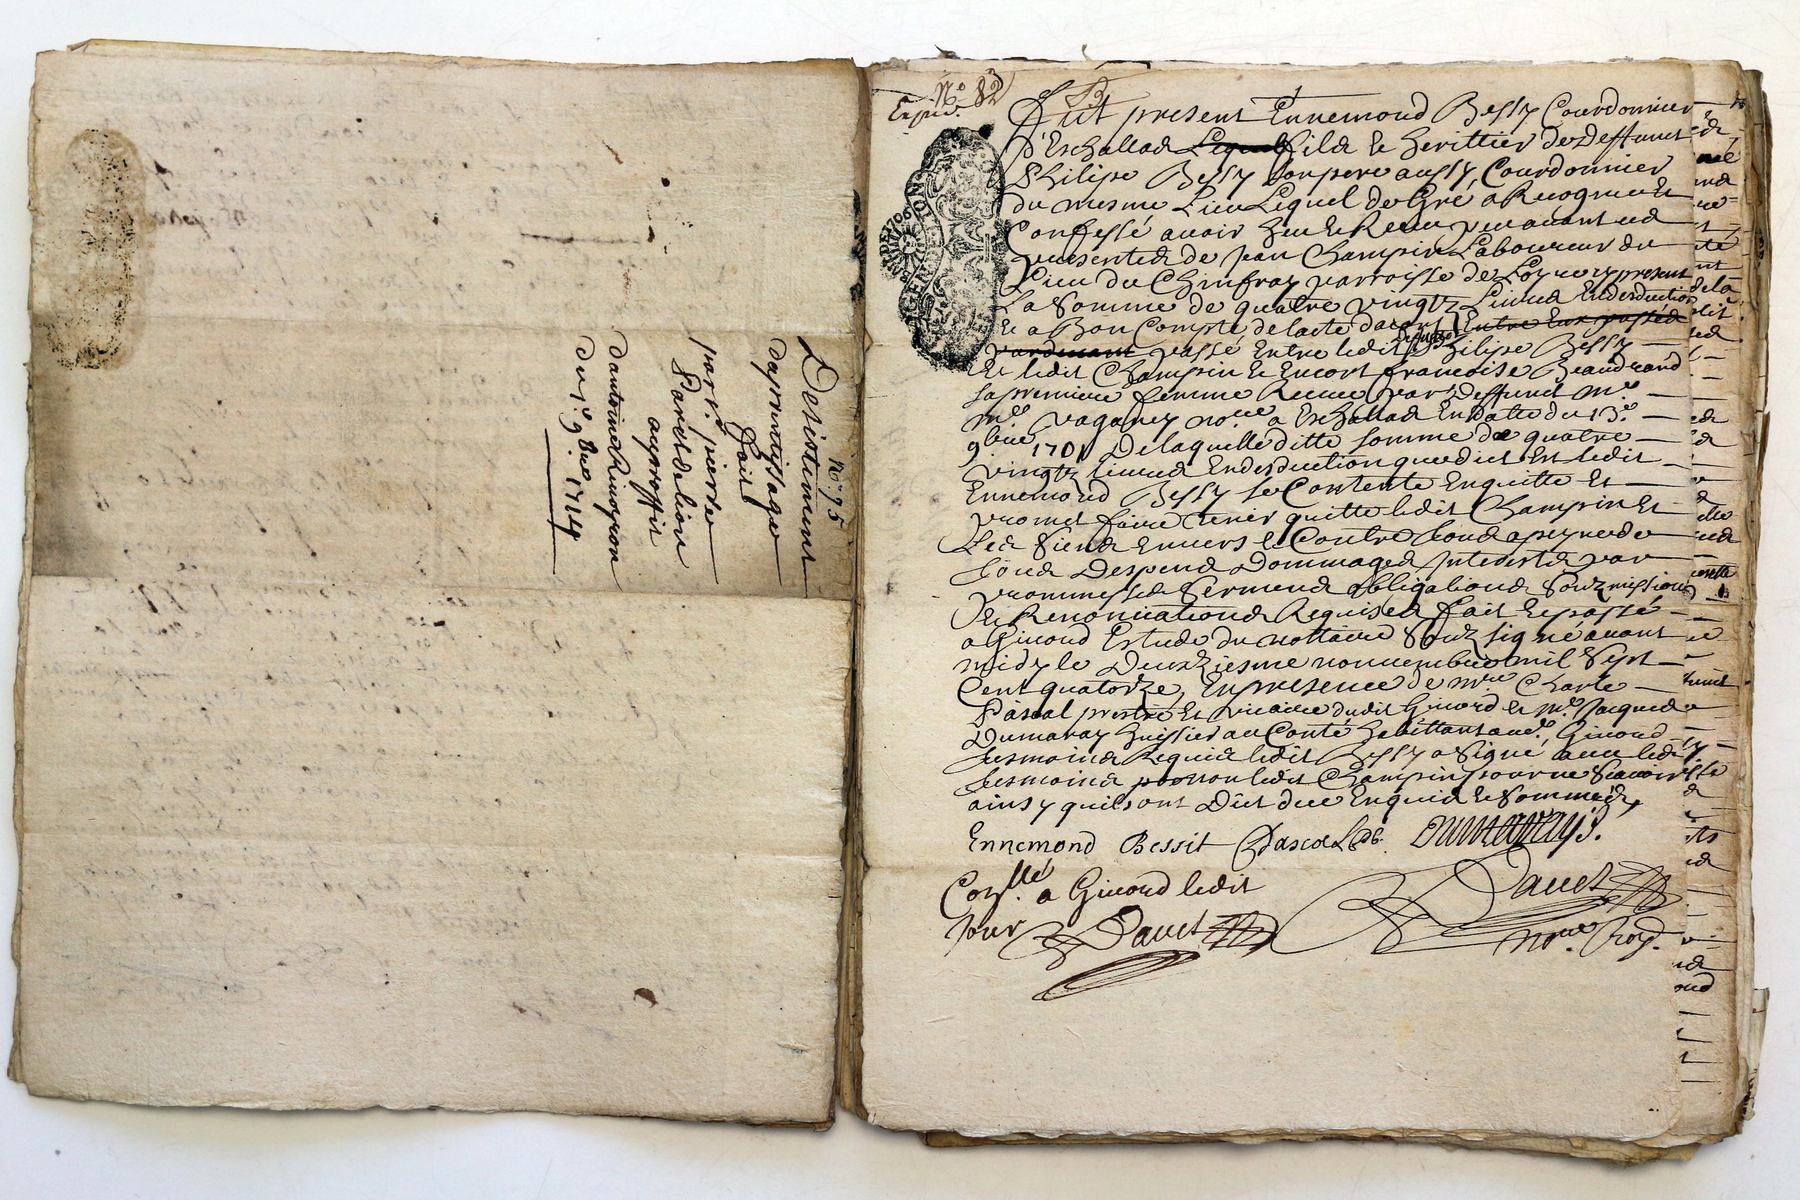 n.° 95
Desistement
daprentissage
fait
par s.r pierre
Paret de lion
au proffit
dantoine Rimoyron
du 1.e 9bre 1714
N.° 82
Exped.
Fut present Ennemond Bessy Courdonnier
d'Eschallas Lequel fils et herittier de deffunct
Philipe Bessy son pere aussy Courdonnier
du mesme Lieu Lequel de Gré a Recogneu et
Confessé avoir heu et Receu peu avant ces
presentes de Jean Champin Laboureur du
Lieu du Chinfray parroisse de Loyre y present
La Somme de quatre vingtz Livres En desduction
et a Bon Compte de lacte dacort Entre Eux passés
pardevant passé Entre ledit deffunct Philipe Bessy
Et ledit Champin et Encort francoise Beaudrand
sa premiere femme Receu par deffunct m.e
m.e vaganey no.re a Eschallas En datte du 13.e
9bre 1701 De laquelle ditte somme de quatre
vingtz livres En desduction que dict Est ledit
Ennemond Bessy se Contente En quitte Et
promet faire tenir quitte ledit Champin Et
Les Siens Envers et Contre tous a peyne de
tous Despens Dommages Interests par
prommesses Sermens obligations Soubzmissions
Et Renonciations Requises fait et passé
a Givord Estude du nottaire Soubz signé avant
midy le Deuxiesme novembre mil Sept
Cent quatorze, En presence de m.re Charle
Pascal prestre Et vicaire dudit Givord et m.e Jacques
Dumaray huissier au Conté habittant aud. Givord
tesmoins Requis ledit Bessy a Signé avec lesd.
tesmoins et non ledit Champin pour ne Scavoir
ainsy quils ont Dict de ce Enquis et Sommés,
Ennemond Bessit Pascal Dumaray
Con.llé a Givord ledit
Jour Davet
Davet
no.re Roy.